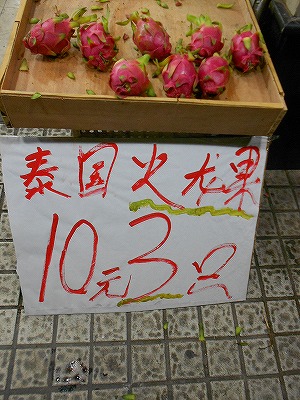 泰国火龙果
10元3只